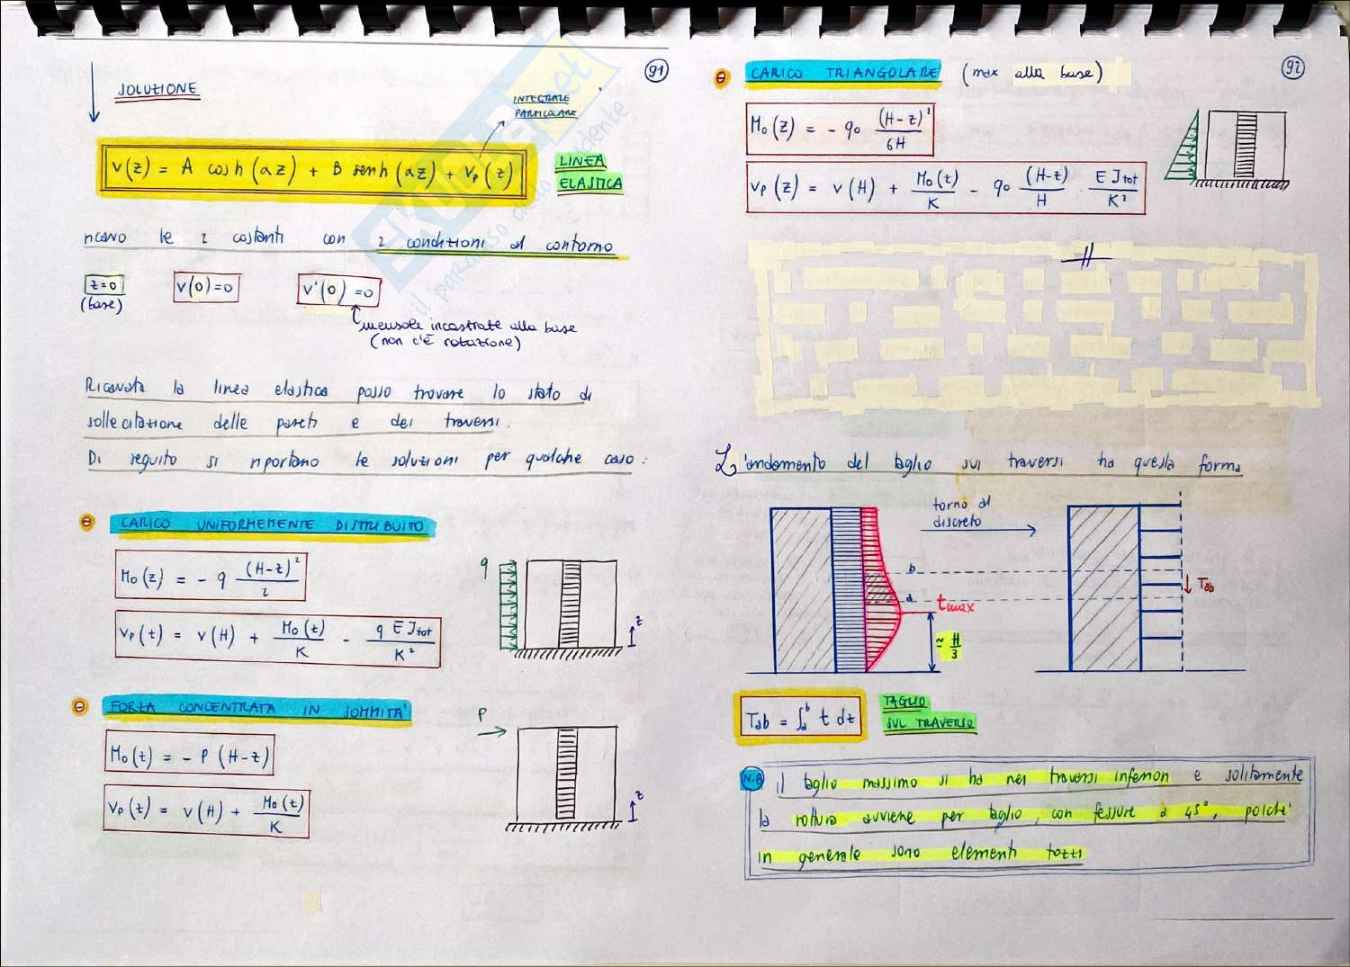 91
SOLUZIONE
INTEGRALE
PARTICOLARE
v(z) = A cosh (αz) + B senh (αz) + vp (z)
LINEA
ELASTICA
ricavo le 2 costanti con 2 condizioni al contorno
z=0
(base)
v(0)=0
v'(0)=0
mensole incastrate alla base
(non c'è rotazione)
Ricavata la linea elastica posso trovare lo stato di
sollecitazione delle pareti e dei traversi.
Di seguito si riportano le soluzioni per qualche caso:
CARICO UNIFORMEMENTE DISTRIBUITO
M₀(z) = - q (H-z)² / 2
vp (z) = v(H) + M₀(z) / K - q E Jtot / K²
q
z
FORZA CONCENTRATA IN SOMMITA'
M₀(z) = - P (H-z)
vp (z) = v(H) + M₀(z) / K
P
z
92
CARICO TRIANGOLARE (max alla base)
M₀(z) = - q₀ (H-z)³ / 6H
vp (z) = v(H) + M₀(z) / K - q₀ (H-z) / H · E Jtot / K²
L'andamento del taglio sui traversi ha questa forma
torno al
discreto
b
a
tmax
≃ H/3
Tab
Tab = ∫ₐᵇ t dz
TAGLIO
SUL TRAVERSO
N.B. il taglio massimo si ha nei traversi inferiori e solitamente
la rottura avviene per taglio, con fessure a 45°, poichè
in generale sono elementi tozzi